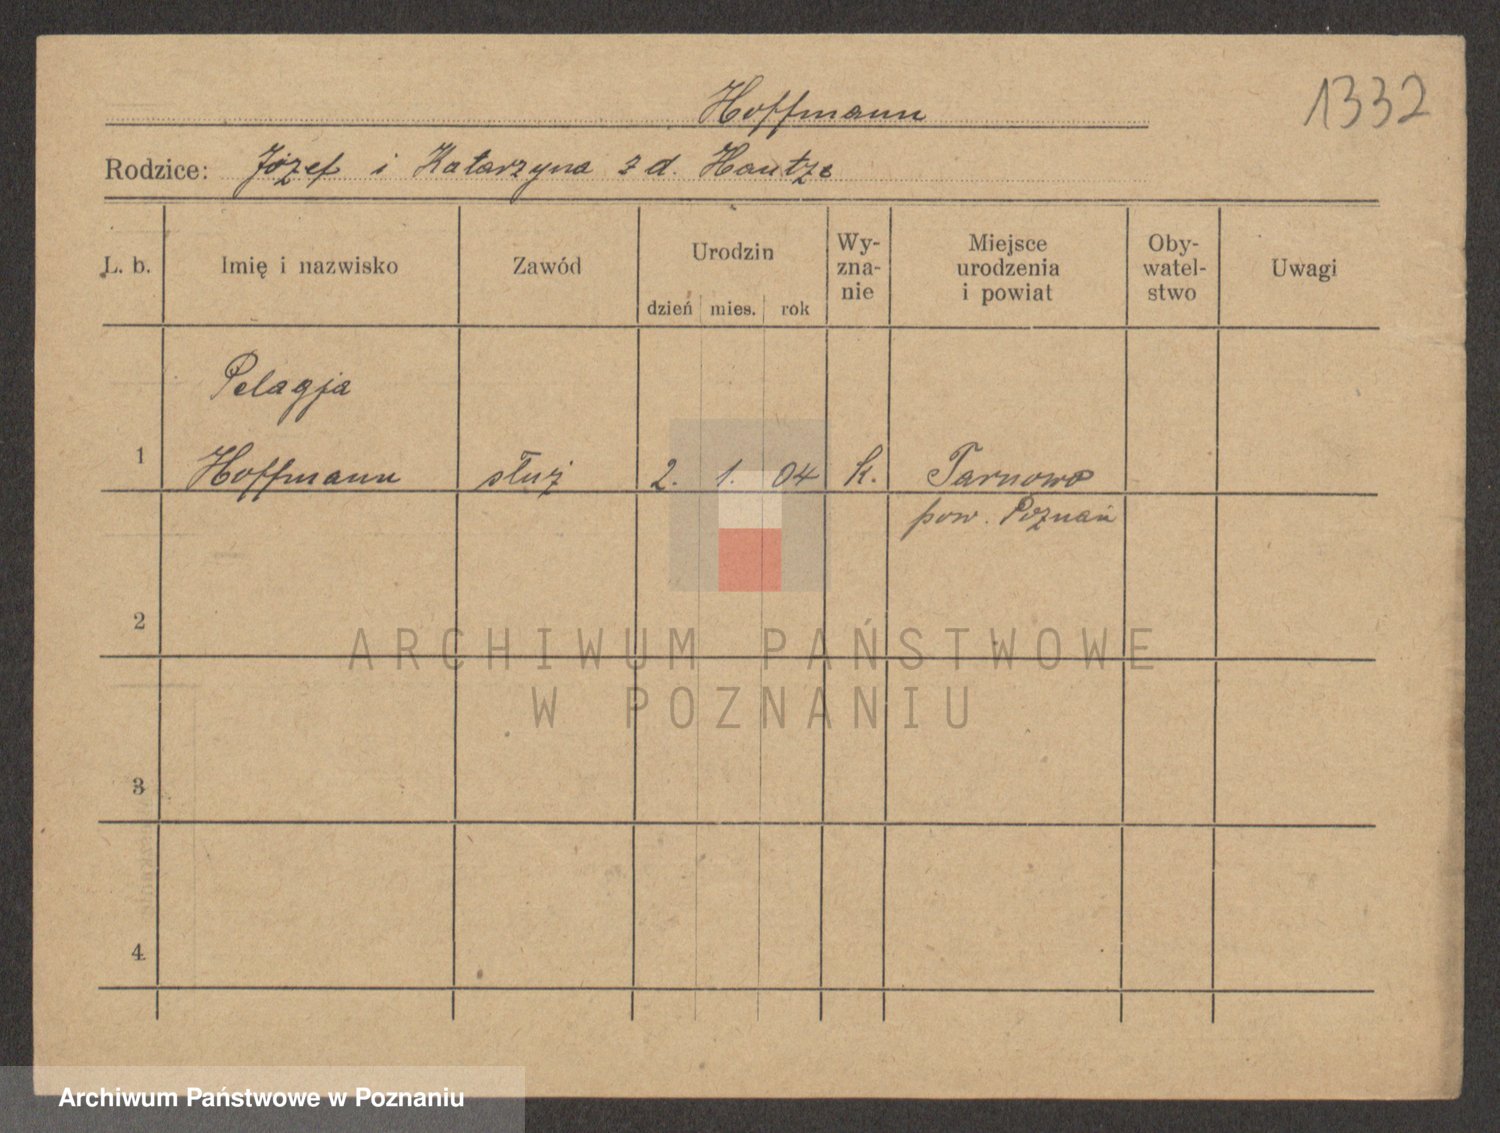 Hoffmann
1332
Rodzice: Józef i Katarzyna z d. Hautze
L. b.
Imię i nazwisko
Zawód
Urodzin
dzień mies. rok
Wy-
zna-
nie
Miejsce
urodzenia
i powiat
Oby-
watel-
stwo
Uwagi
Pelagja
1 Hoffmann służ 2. 1. 04 k. Tarnowo
pow. Poznań
2
ARCHIWUM PAŃSTWOWE
W POZNANIU
3
4
Archiwum Państwowe w Poznaniu